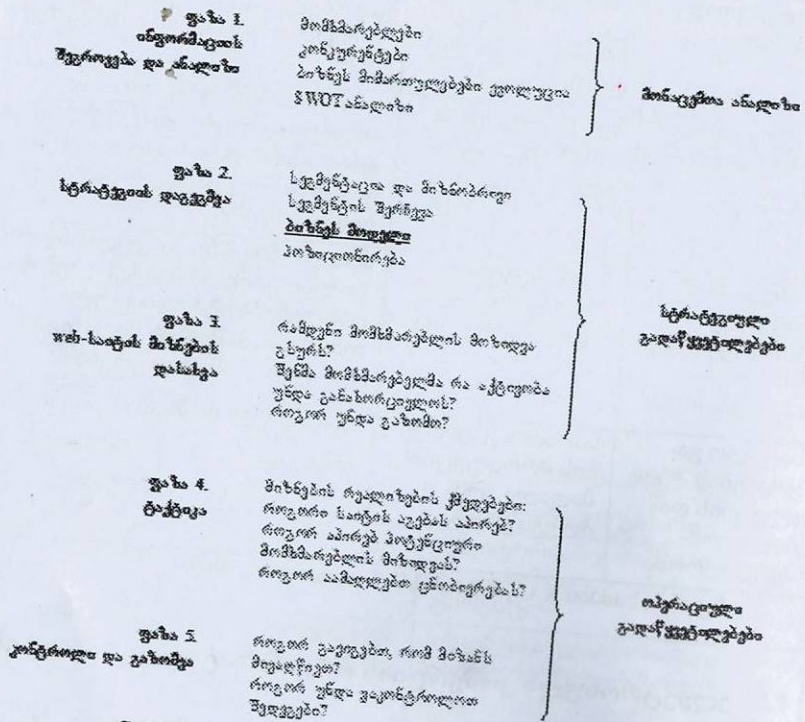 ფაზა 1.
ინფორმაციის
შეგროვება და ანალიზი
მომხმარებლები
კონკურენტები
ბიზნეს მიმართულებები ევოლუცია
SWOT ანალიზი
მონაცემთა ანალიზი
ფაზა 2.
სტრატეგიის დაგეგმვა
სეგმენტაცია და მიზნობრივი
სეგმენტის შერჩევა
ბიზნეს მოდელი
პოზიციონირება
ფაზა 3.
ვებ-საიტის მიზნების
დასახვა
რამდენი მომხმარებლის მოზიდვა
გსურს?
შენმა მომხმარებელმა რა აქტივობა
უნდა განახორციელოს?
როგორ უნდა გაზომო?
სტრატეგიული
გადაწყვეტილებები
ფაზა 4.
ტაქტიკა
მიზნების რეალიზების ქმედებები:
როგორი საიტის აგებას აპირებ?
როგორ აპირებ პოტენციური
მომხმარებლის მიზიდვას?
როგორ აამაღლებთ ცნობიერებას?
ფაზა 5.
კონტროლი და გაზომვა
როგორ გავიგებთ, რომ მიზანს
მივაღწიეთ?
როგორ უნდა ვაკონტროლოთ
შედეგები?
ოპერაციული
გადაწყვეტილებები